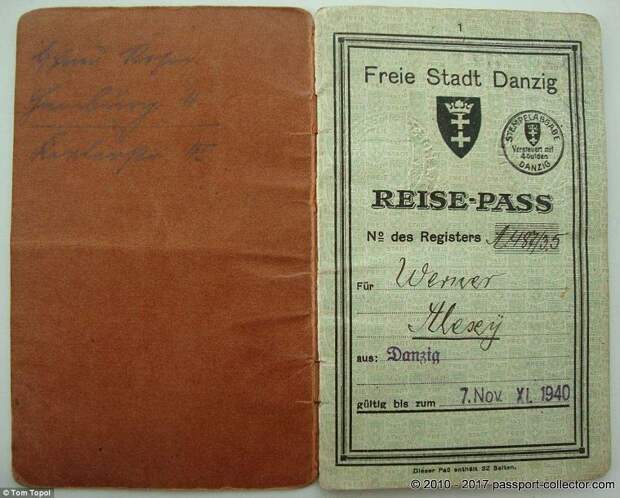 Hamburg
1
Freie Stadt Danzig
STEMPELABGABE
Versteuert mit
4 Gulden
DANZIG
REISE-PASS
No des Registers A 487/35
Für Werner
Alexey
aus: Danzig
gültig bis zum 7. Nov. XI. 1940
Dieser Paß enthält 32 Seiten.
© Tom Topol
© 2010 - 2017 passport-collector.com